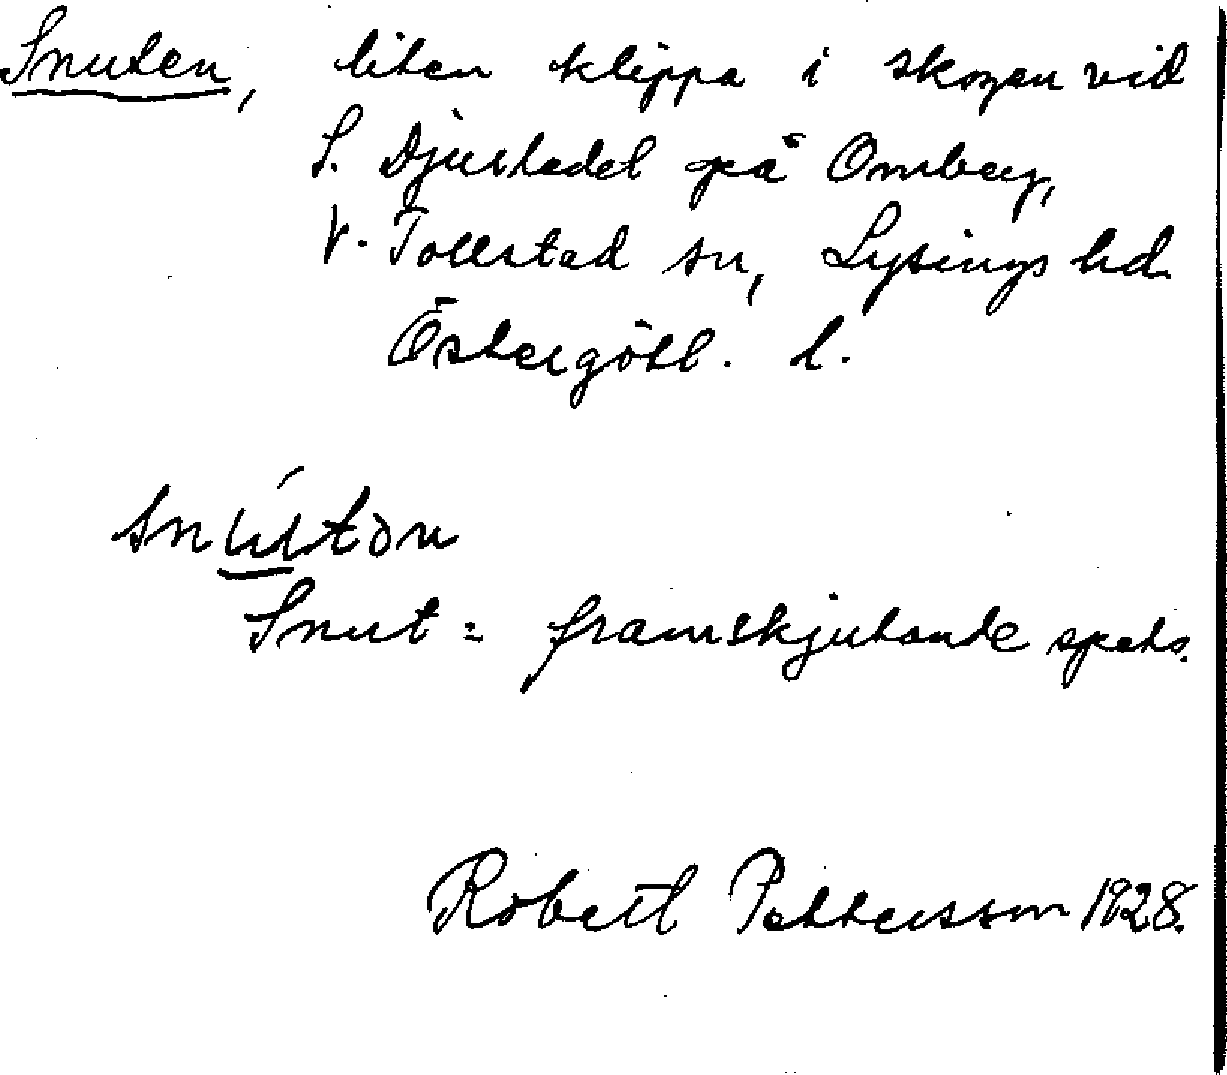 Snuten, liten klippa i skogen vid
S. Djurledet på Omberg,
V. Tollstad sn, Lysings hd
Östergötl. l.
snu̲tən
Snut = framskjutande spets.
Robert Pettersson 1928.